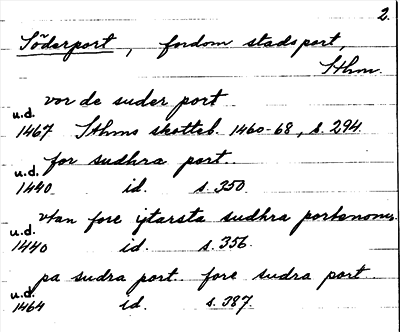 2.
Söderport, fordom stadsport,
Sthm.
vor de suder port
u.d.
1467 Sthms skotteb. 1460-68, s. 294.
for sudhra port.
u.d.
1440 id. s. 350
vtan fore ytarsta sudhra portenom.
u.d.
1440 id. s. 356.
pa sudra port. fore sudra port.
u.d.
1464 id. s. 387.